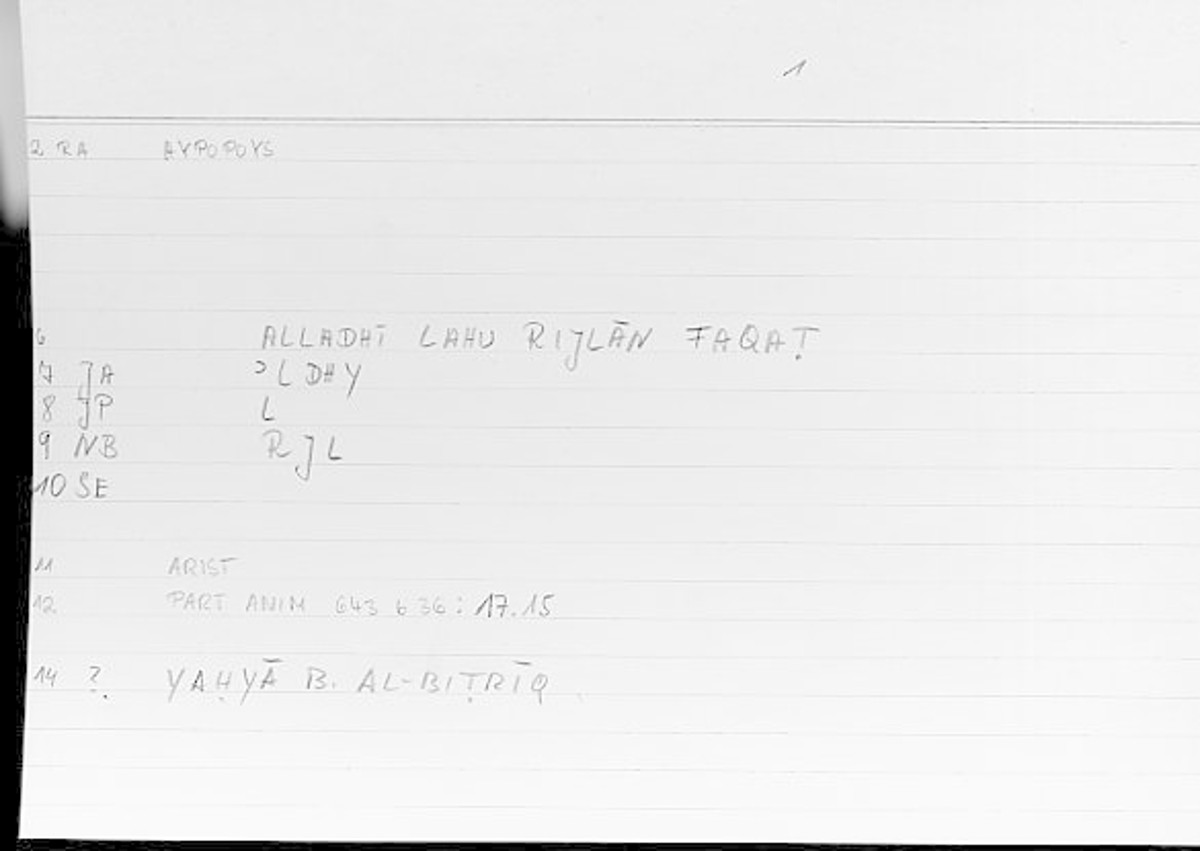 1
2 RA AYPOPOYS
6 ALLADHĪ LAHU RIJLĀN FAQAṬ
7 JA ʾLDHY
8 JP L
9 NB RJL
10 SE
11 ARIST
12 PART ANIM 643 b 36: 17.15
14 ? YAḤYĀ B. AL-BIṬRĪQ